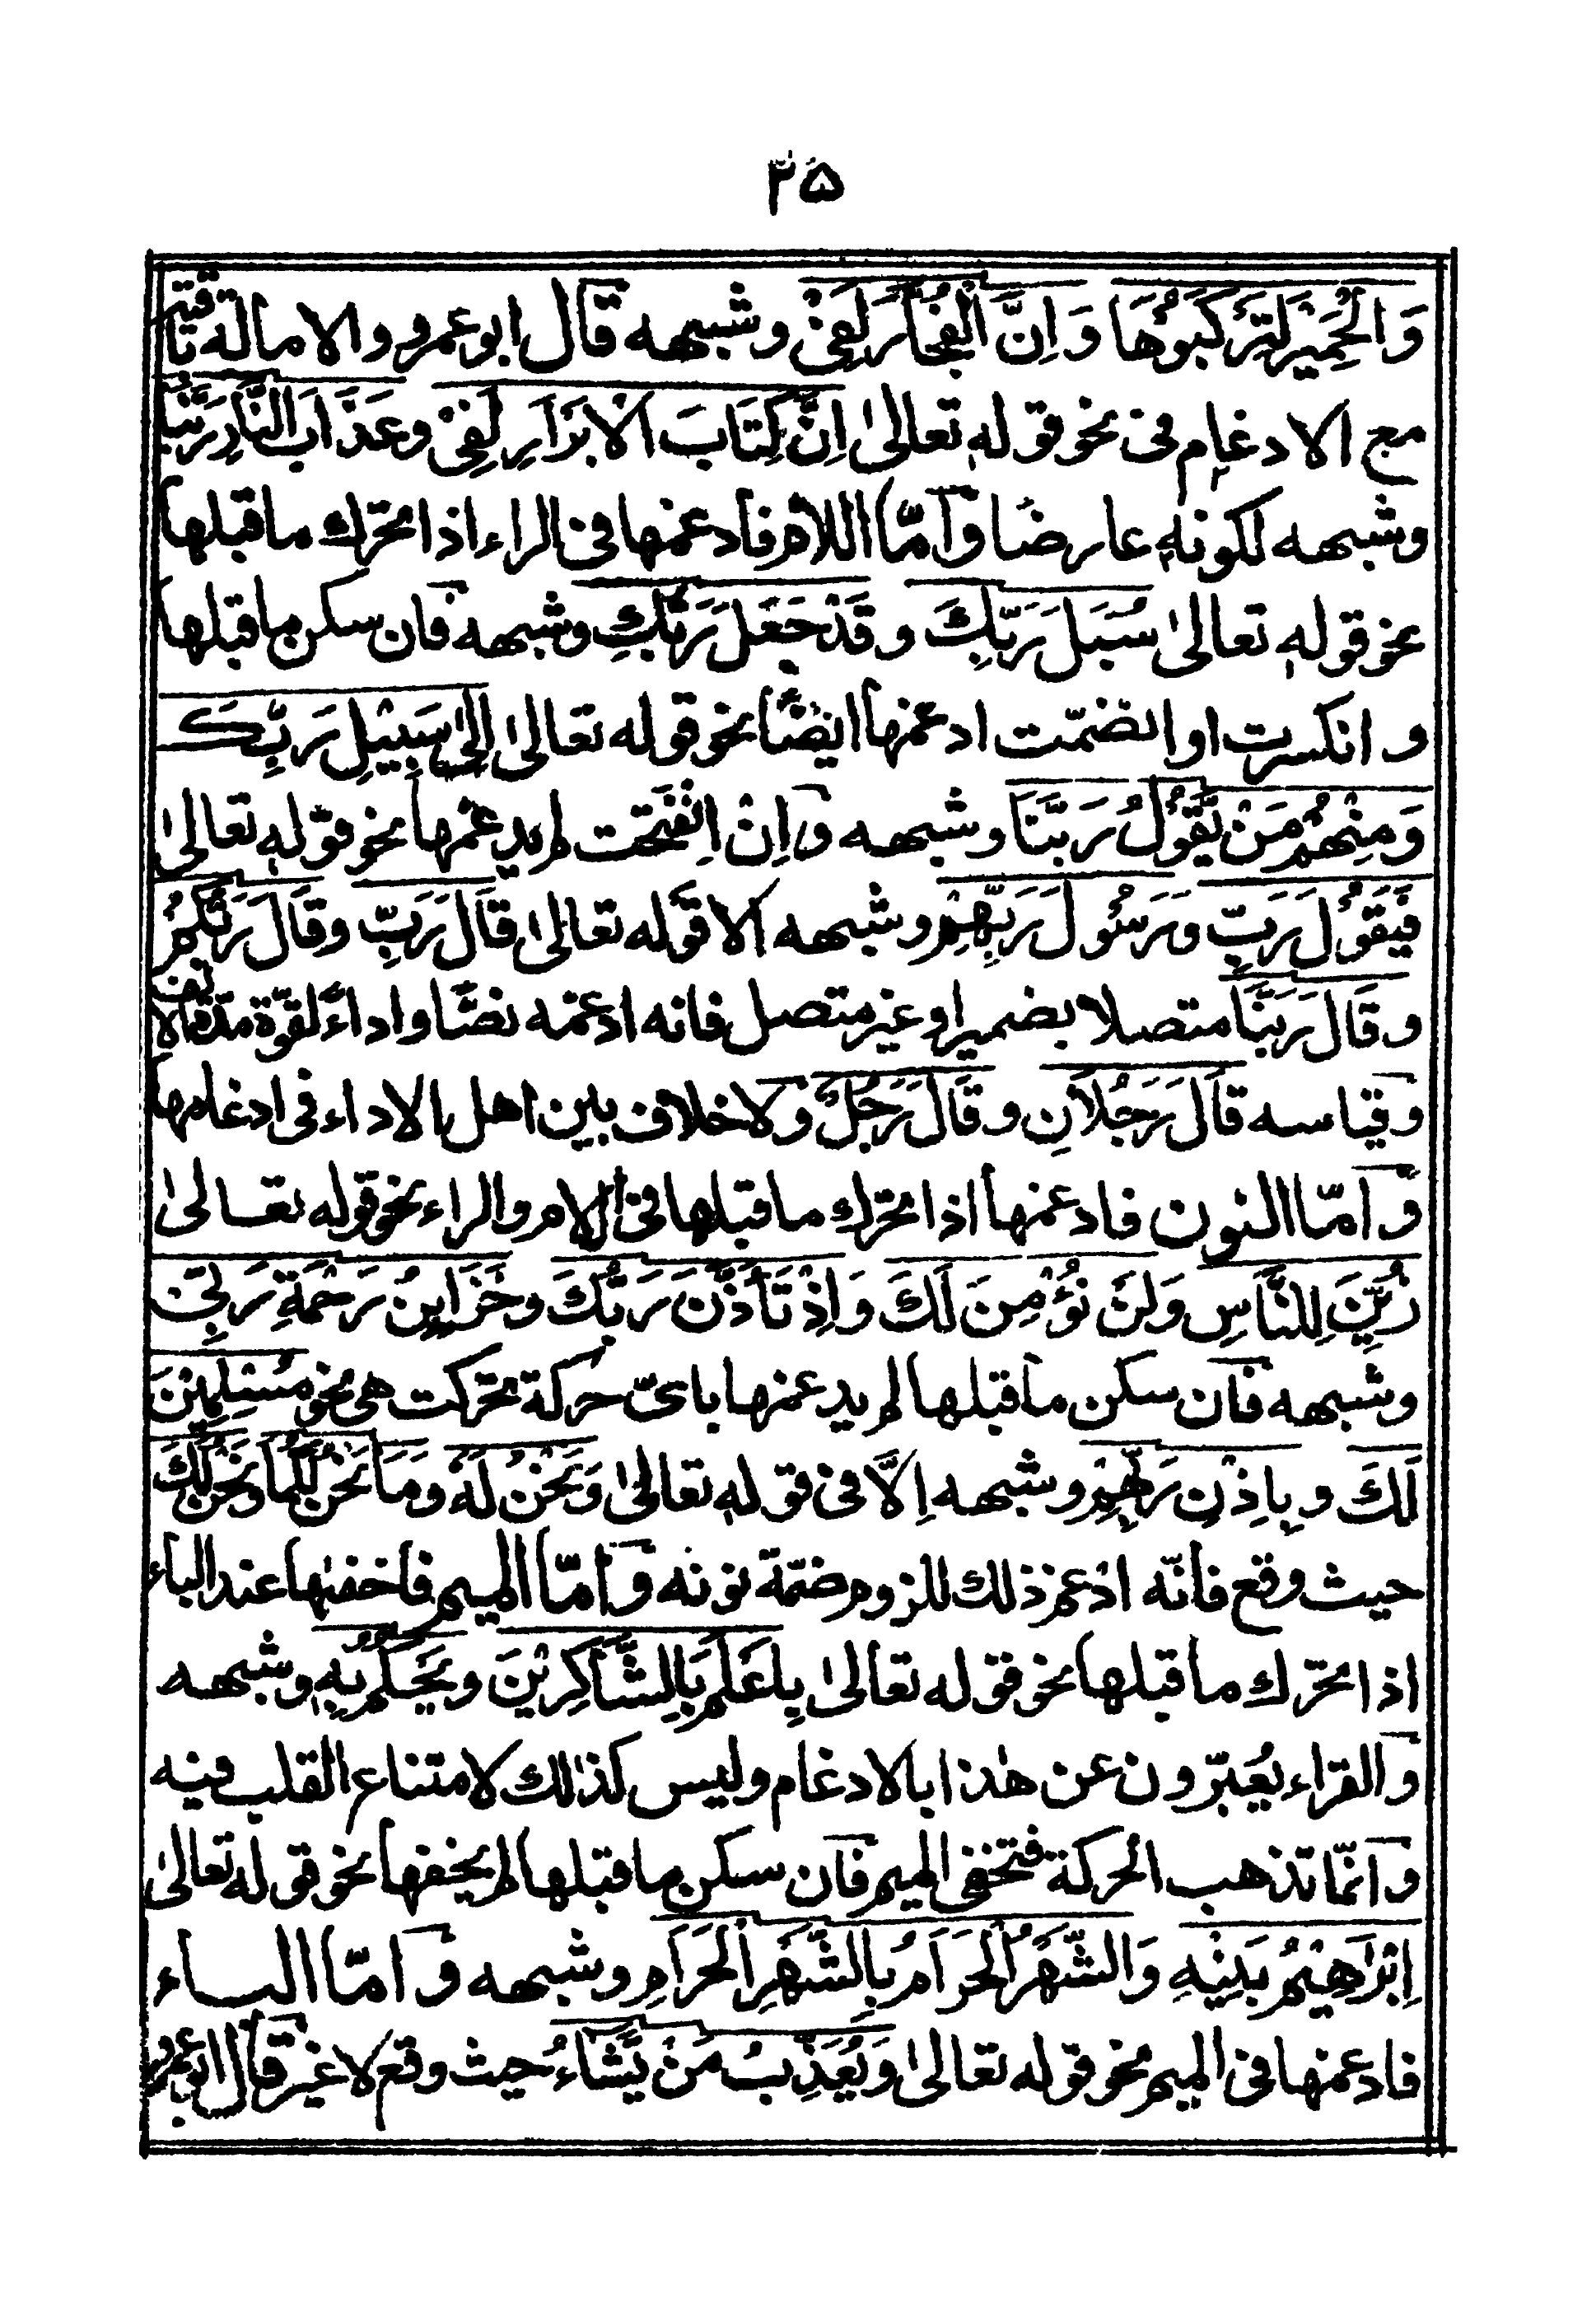 ۳۵
وَالْحَمِيْرَ لِتَرْكَبُوْهَا وَاِنَّ الْفُجَّارَ لَفِيْ وشبهه قال ابو عمرو والامالة باقية
مع الادغام فى نحو قوله تعالىٰ اِنَّ كِتَابَ الْاَبْرَارِ لَفِيْ وعَذَابَ النَّارِ رَبَّنَا
وشبهه لكونه عارضًا وَامّا اللام فادغمها فى الراء اذا تحرّك ما قبلها
نحو قوله تعالىٰ سُبُلَ رَبِّكَ وقَدْ جَعَلَ رَبُّكِ وشبهه فان سكن ما قبلها
وانكسرت او انضمّت ادغمها ايضًا نحو قوله تعالىٰ اِلىٰ سَبِيْلِ رَبِّكَ
وَمِنْهُمْ مَنْ يَّقُوْلُ رَبَّنَا وشبهه وَاِنْ اِنْفَتَحت لم يدغمها نحو قوله تعالىٰ
فَيَقُوْلَ رَبِّ وَرَسُوْلَ رَبِّهِمْ وشبهه الا قوله تعالىٰ قَالَ رَبِّ وقَالَ رَبُّكُمْ
وقَالَ رَبَّنَا متصلا بضمير او غير متصل فانه ادغمه نصًّا واداءً لقوّة مدّة الالف
وقياسه قَالَ رَجُلَانِ وقَالَ رَجُلٌ ولا خلاف بين اهل الاداء فى ادغامها
وَامّا النون فادغمها اذا تحرّك ما قبلها فى اللام والراء نحو قوله تعالىٰ
زُيِّنَ لِلنَّاسِ وَلَنْ نُؤْمِنَ لَكَ وَاِذْ تَاَذَّنَ رَبُّكَ وخَزَايِنُ رَحْمَةِ رَبِّيْ
وشبهه فان سكن ما قبلها لم يدغمها باىّ حركة تحركت هى نحو مُسْلِمَيْنِ
لَكَ وبِاِذْنِ رَبِّهِمْ وشبهه اِلَّا فى قوله تعالىٰ وَنَحْنُ لَهُ ومَا نَحْنُ لَكُمَا ونَحْنُ لَكَ
حيث وقع فانّه ادغم ذلك للزوم ضمّة نونه وَامّا الميم فاخفٰها عند الباء
اذا تحرّك ما قبلها نحو قوله تعالىٰ بِاَعْلَمَ بِالشَّاكِرِيْنَ ويَحْكُمُ بِهٖ وشبهه
والقراء يُعَبّرون عن هٰذا بالادغام وليس كذٰلك لامتناع القلب فيه
وانّما تذهب الحركة فتخفى الميم فان سكن ما قبلها لم يخفها نحو قوله تعالىٰ
اِبْرَاهِيْمُ بَنِيْهِ وَالشَّهْرُ الْحَرَامُ بِالشَّهْرِ الْحَرَامِ وشبهه وَامّا البـاء
فادغمها فى الميم نحو قوله تعالىٰ وَيُعَذِّبُ مَنْ يَّشَاءُ حيث وقع لا غير قال ابو عمرو